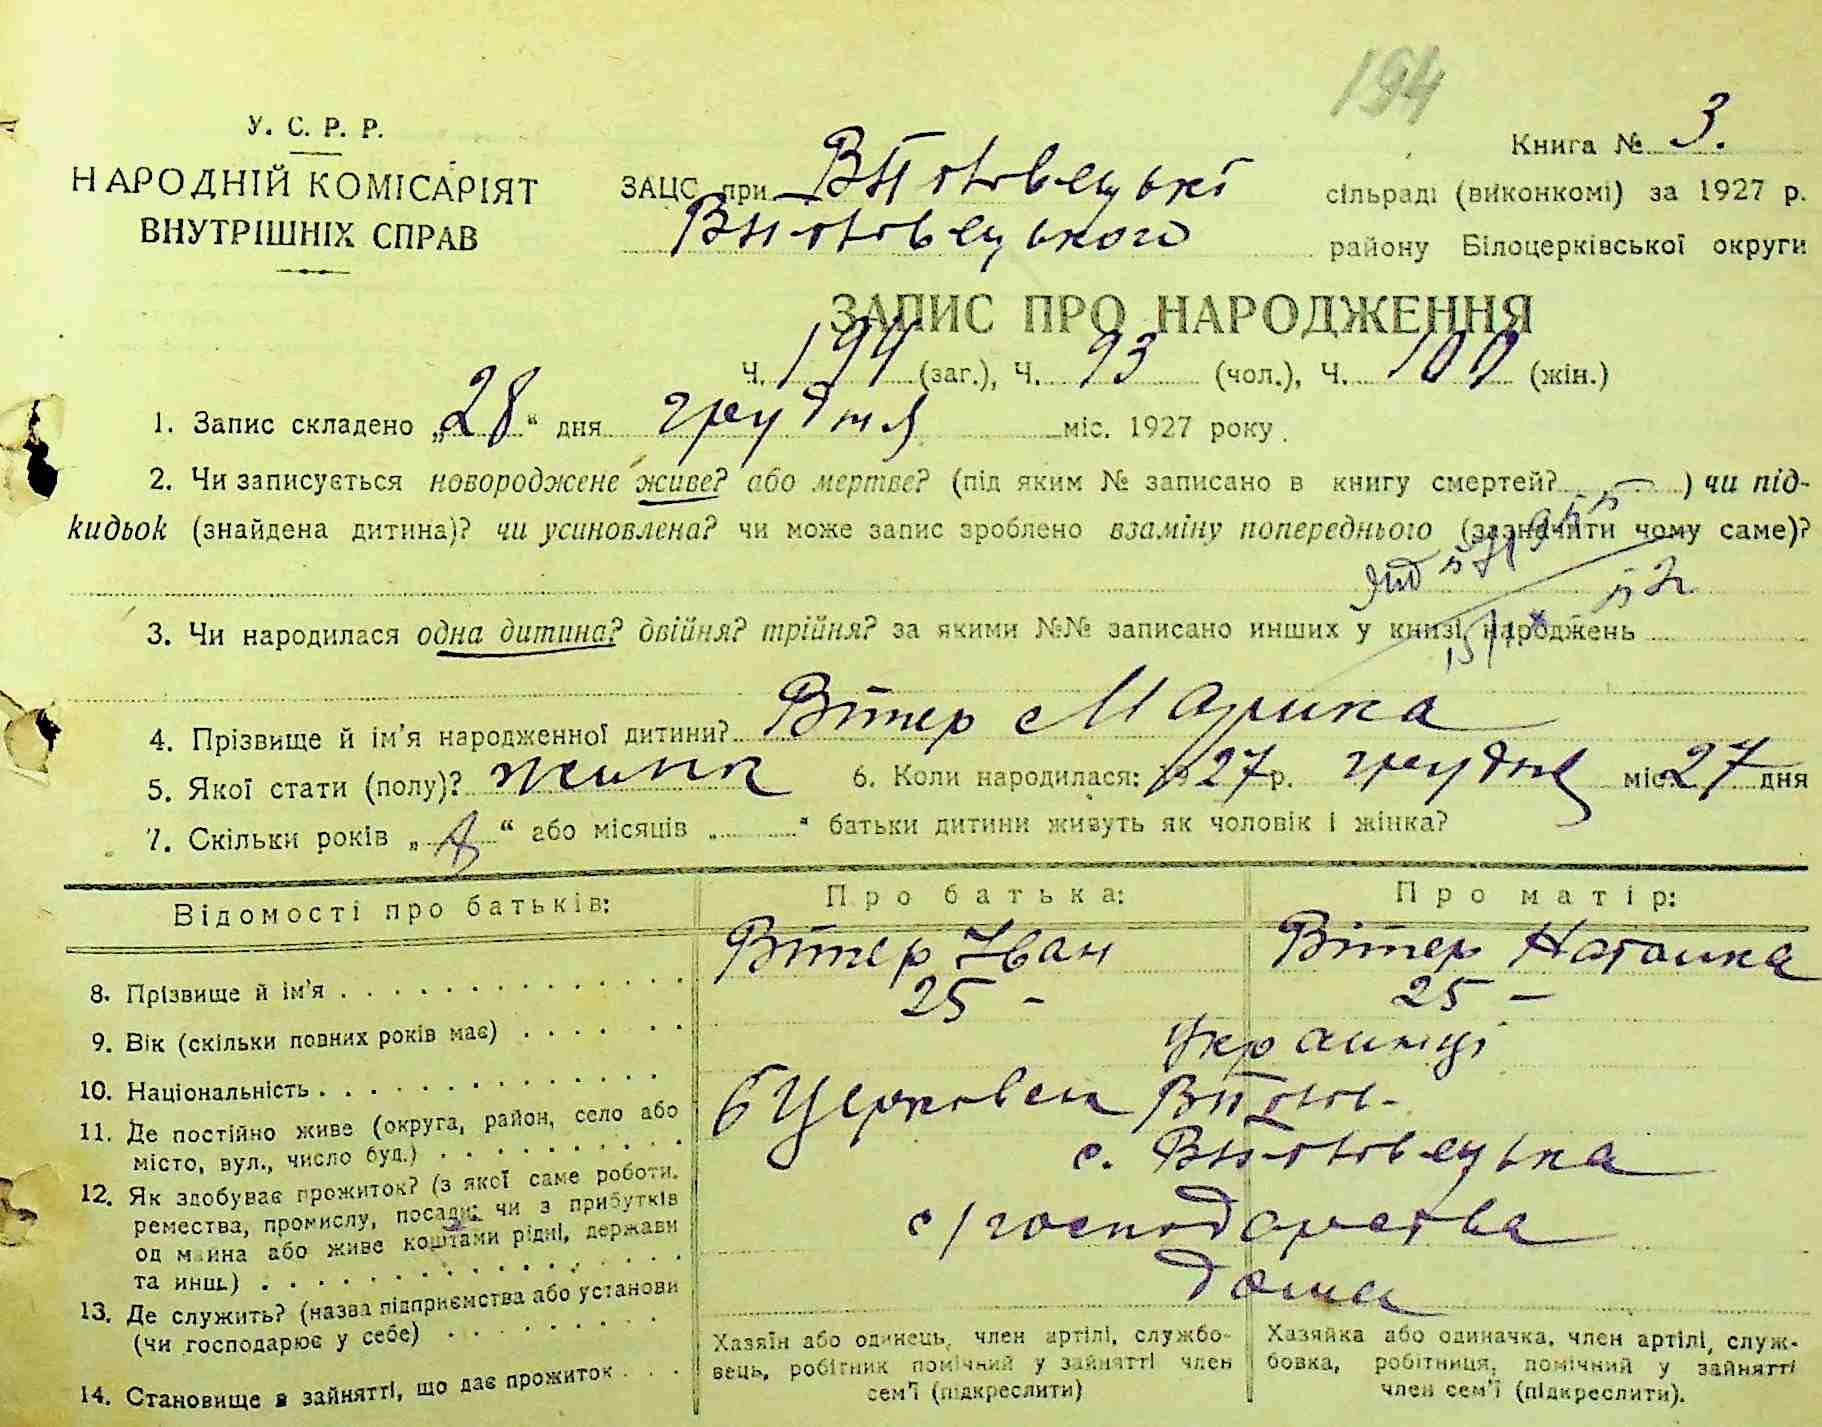 194
У. С. Р. Р.
НАРОДНІЙ КОМІСАРІЯТ
ВНУТРІШНІХ СПРАВ
Книга № 3.
ЗАЦС при сільраді (виконкомі) за 1927 р.
району Білоцерківської округи
ЗАПИС ПРО НАРОДЖЕННЯ
Ч. 194 (заг.), Ч. 93 (чол.), Ч. (жін.)
1. Запис складено „28“ дня грудня міс. 1927 року.
2. Чи записується новороджене живе? або мертве? (під яким № записано в книгу смертей? ) чи під-
кидьок (знайдена дитина)? чи усиновлена? чи може запис зроблено взаміну попереднього (зазначити чому саме)?
3. Чи народилася одна дитина? двійня? трійня? за якими №№ записано инших у книзі народжень
4. Прізвище й ім'я народженної дитини? Вітер Марика
5. Якої стати (полу)? жинка 6. Коли народилася: 1927 р. грудня міс. 27 дня
7. Скільки років „ “ або місяців „ “ батьки дитини живуть як чоловік і жінка?
Відомості про батьків: Про батька: Про матір:
8. Прізвище й ім'я Вітер Іван Вітер Наталка
9. Вік (скільки повних років має) 25 – 25 –
10. Національність Українці
11. Де постійно живе (округа, район, село або
місто, вул., число буд.) Б Церковськ
12. Як здобуває прожиток? (з якої саме роботи,
ремества, промислу, посади; чи з прибутків
од майна або живе коштами рідні, держави
та инш.) с/господарства
13. Де служить? (назва підприємства або установи
(чи господарює у себе) дома
14. Становище в зайнятті, що дає прожиток
Хазяїн або одинець, член артілі, службо-
вець, робітник помічний у зайнятті член
сем'ї (підкреслити)
Хазяйка або одиначка, член артілі, служ-
бовка, робітниця, помічний у зайнятті
член сем'ї (підкреслити).